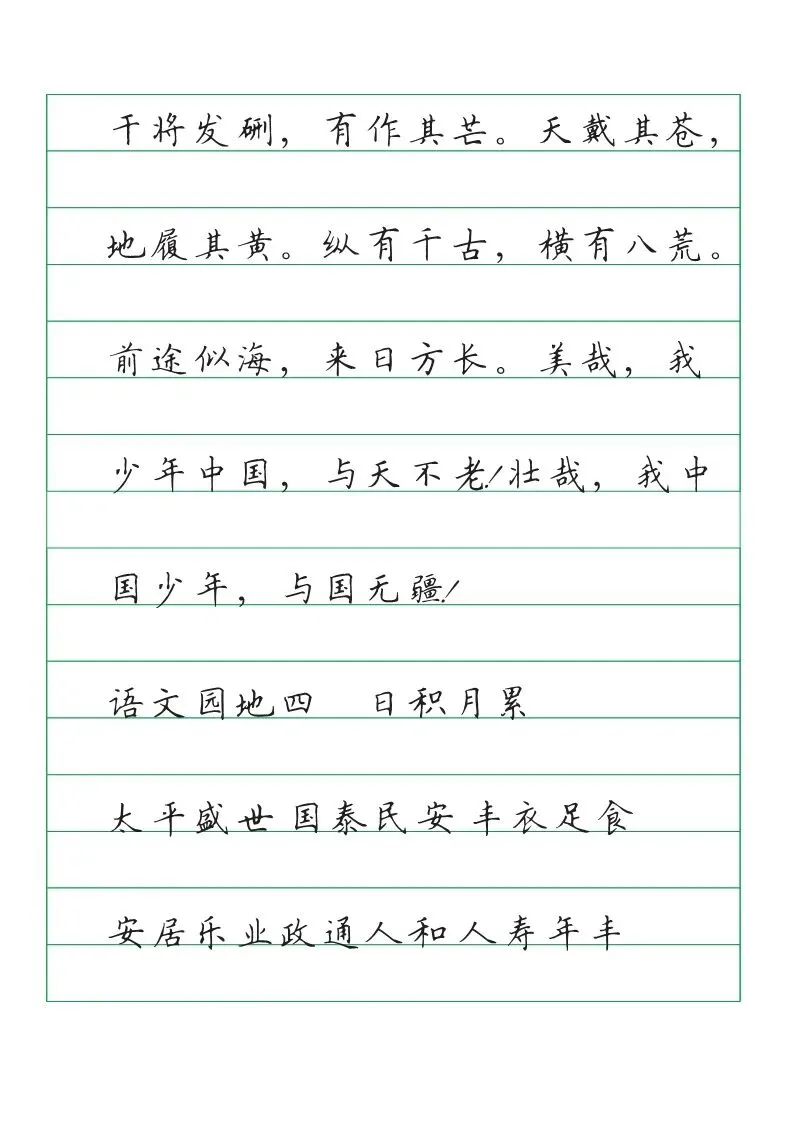 干将发硎，有作其芒。天戴其苍，
地履其黄。纵有千古，横有八荒。
前途似海，来日方长。美哉，我
少年中国，与天不老！壮哉，我中
国少年，与国无疆！
语文园地四　日积月累
太平盛世 国泰民安 丰衣足食
安居乐业 政通人和 人寿年丰